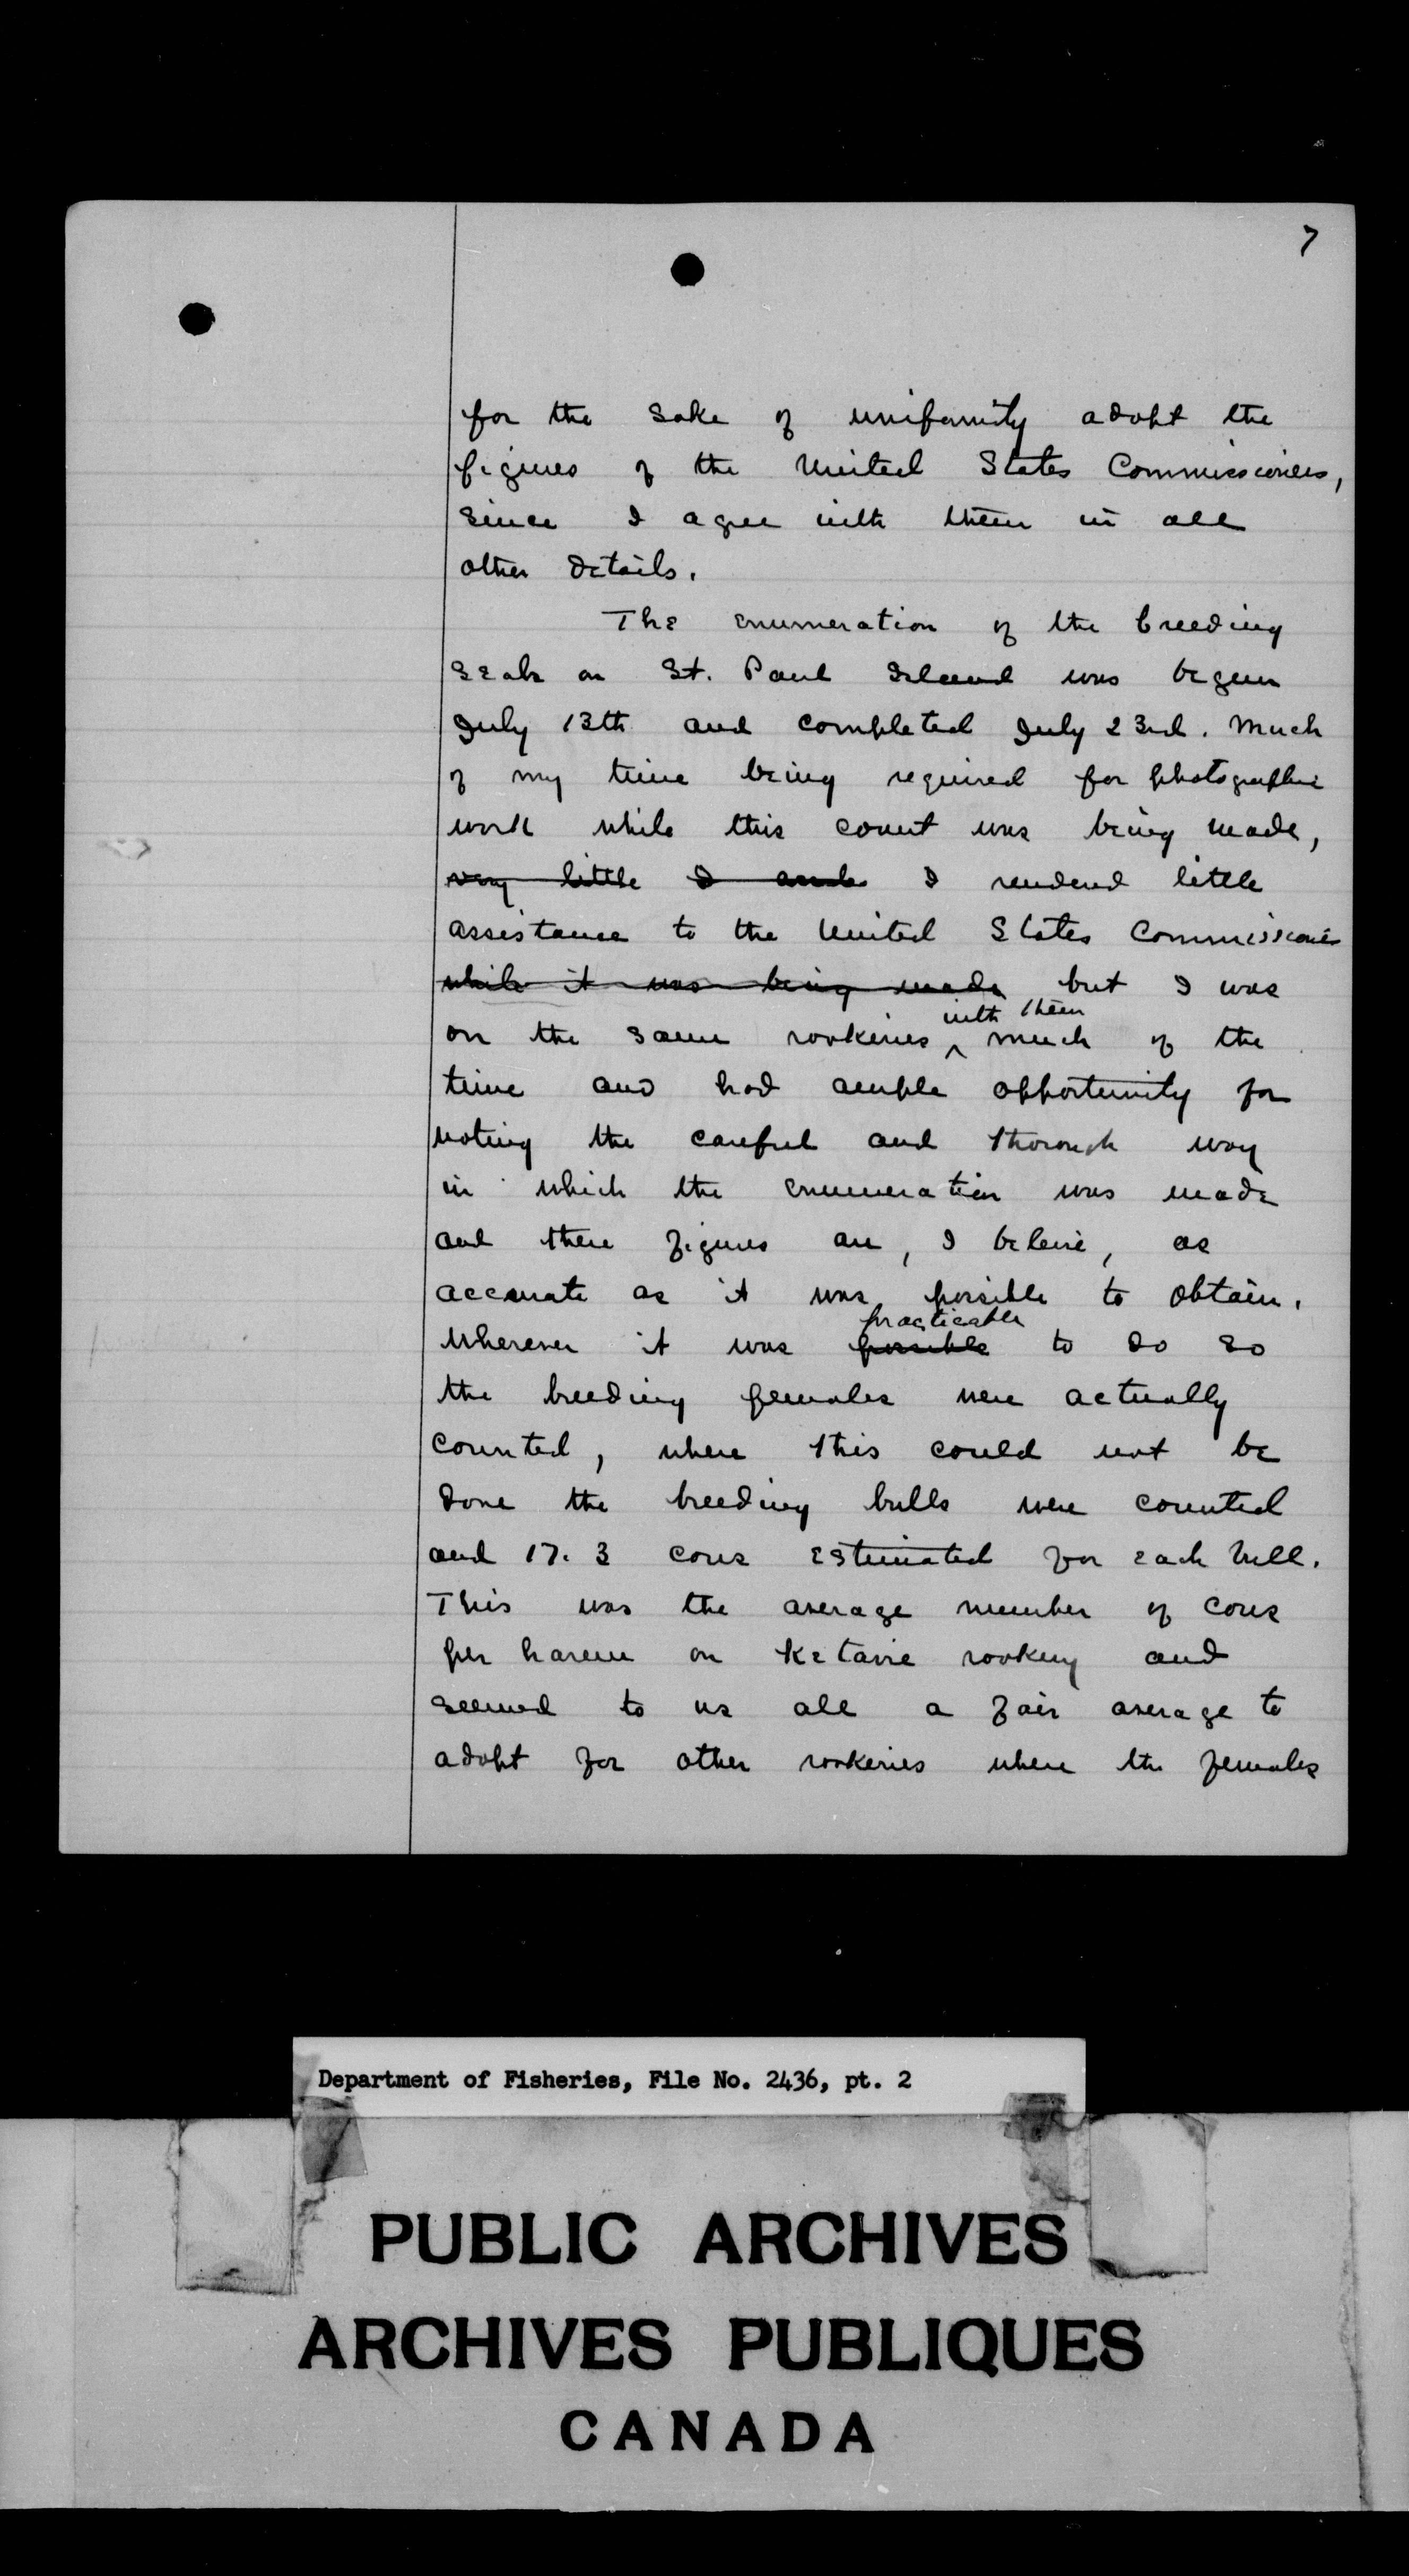 7
for the sake of uniformity adopt the
figures of the United States Commissioners,
since I agree with them in all
other details.
The enumeration of the breeding
seals on St. Paul Island was begun
July 13th and completed July 23rd. Much
of my time being required for photographic
work while this count was being made,
very little I I rendered little
assistance to the United States Commissioners
while it was being made but I was
with them
on the same rookeries ^ much of the
time and had ample opportunity for
noting the careful and thorough way
in which the enumeration was made
and these figures are, I believe, as
accurate as it was possible to obtain.
practicable
Wherever it was possible to do so
the breeding females were actually
counted, where this could not be
done the breeding bulls were counted
and 17.3 cows estimated for each bull.
This was the average number of cows
per harem on Ketavie rookery and
seemed to us all a fair average to
adopt for other rookeries where the females
Department of Fisheries, File No. 2436, pt. 2
PUBLIC ARCHIVES
ARCHIVES PUBLIQUES
CANADA